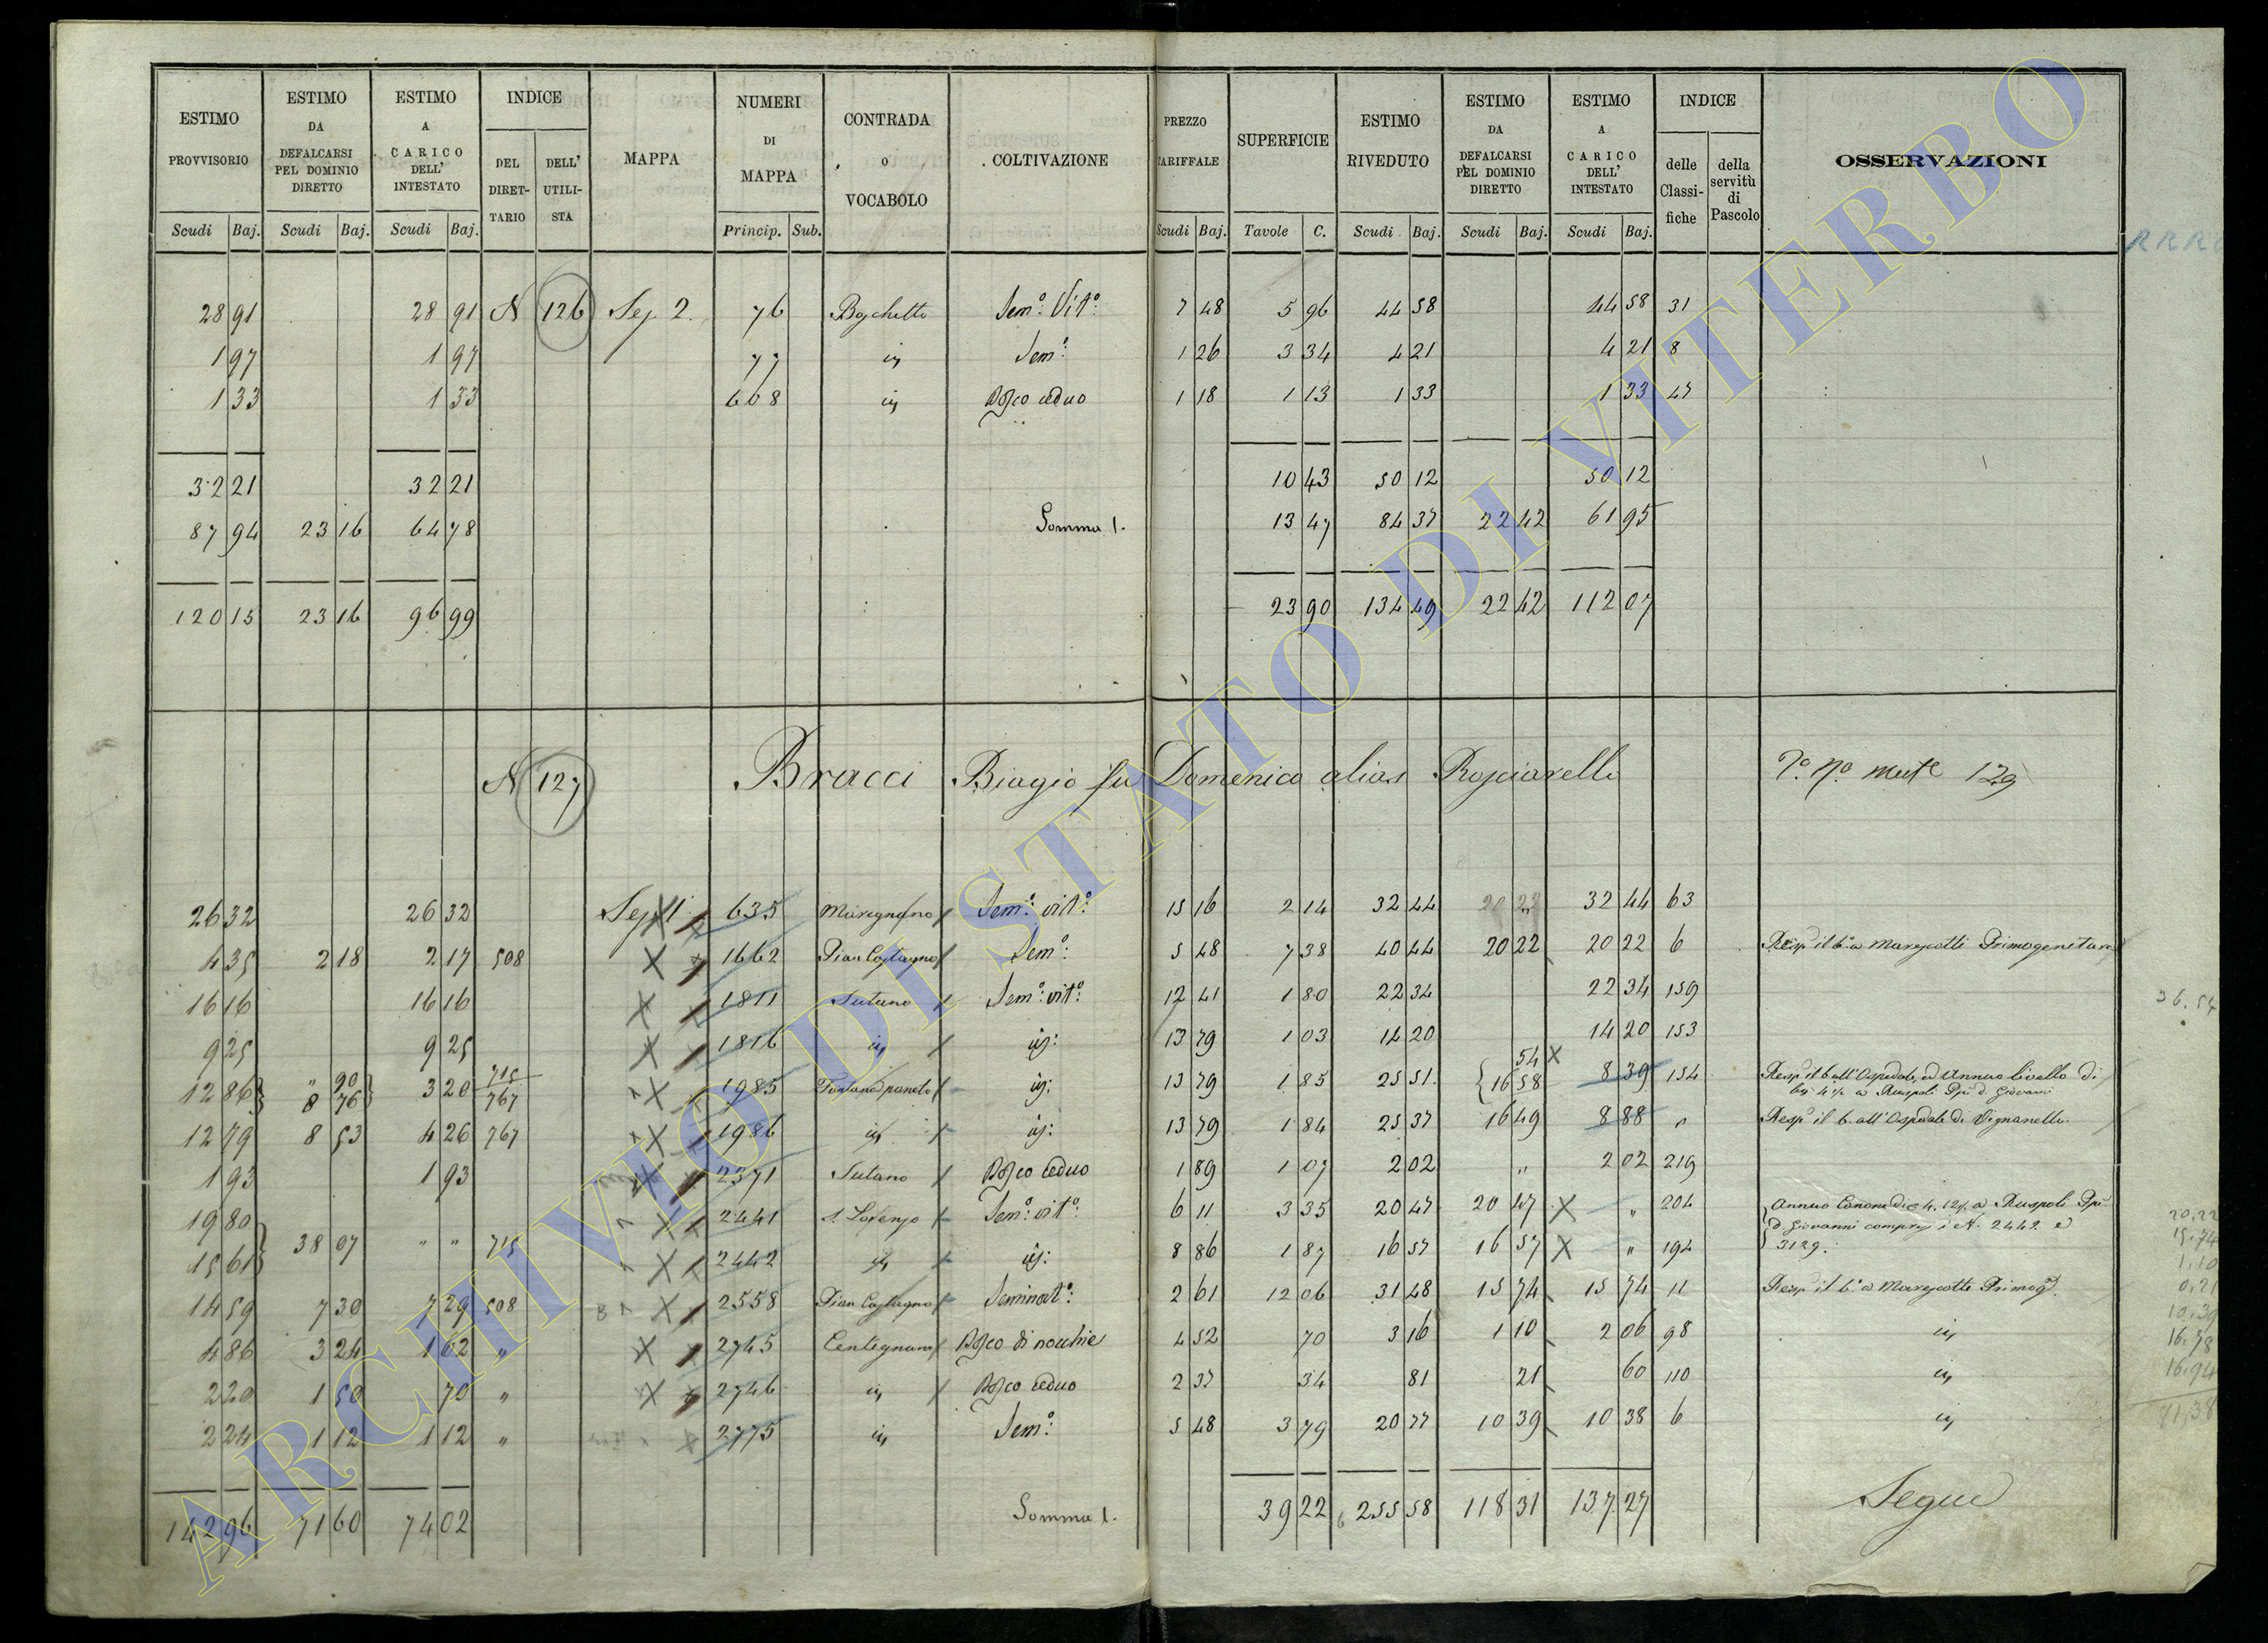 ESTIMO PROVVISORIO | ESTIMO DA DEFALCARSI PEL DOMINIO DIRETTO | ESTIMO A CARICO DELL' INTESTATO | INDICE | MAPPA | NUMERI DI MAPPA | CONTRADA O VOCABOLO | COLTIVAZIONE | PREZZO TARIFFALE | SUPERFICIE | ESTIMO RIVEDUTO | ESTIMO DA DEFALCARSI PEL DOMINIO DIRETTO | ESTIMO A CARICO DELL' INTESTATO | INDICE | OSSERVAZIONI
DEL DIRETTARIO | DELL' UTILISTA | delle Classifiche | della servitù di Pascolo
Scudi Baj. | Scudi Baj. | Scudi Baj. | Princip. Sub. | Scudi Baj. | Tavole C. | Scudi Baj. | Scudi Baj. | Scudi Baj.
28 91 | 28 91 | N 126 | Sez. 2. | 76 | Boschetto | Sem.º Vit.º | 7 48 | 5 96 | 44 58 | 44 58 | 31
1 97 | 1 97 | 77 | Sem.º | 1 26 | 3 34 | 4 21 | 4 21 | 8
1 33 | 1 33 | 668 | Bosco ceduo | 1 18 | 1 13 | 1 33 | 1 33 | 47
32 21 | 32 21 | 10 43 | 50 12 | 50 12
87 94 | 23 16 | 64 78 | Somma 1. | 13 47 | 84 37 | 22 42 | 61 95
120 15 | 23 16 | 96 99 | 23 90 | 134 49 | 22 42 | 112 07
N 127 | Bracci Biagio fu Domenico alias Rosciarello | 129
26 32 | 26 32 | Sez. 1 | 635 | Maregnano | Sem.º vit.º | 15 16 | 2 14 | 32 44 | 20 22 | 32 44 | 63
4 35 | 2 18 | 2 17 | 508 | 1662 | Pian Castagno | Sem.º | 5 48 | 7 38 | 40 44 | 20 22 | 20 22 | 6 | Resp. il b.º a Marescotti Primogenitura
16 16 | 16 16 | 1811 | Sutano | Sem.º vit.º | 12 41 | 1 80 | 22 34 | 22 34 | 159
9 25 | 9 25 | 1816 | 13 79 | 1 03 | 14 20 | 14 20 | 153
12 86 | " 90 8 76 | 3 20 | 715 767 | 1985 | 13 79 | 1 85 | 25 51 | 54 16 58 | 8 39 | 154 | Resp. il b. all'Ospedale, ed Annuo livello di
a Ruspoli Ppe. D. Giovanni
12 79 | 8 53 | 4 26 | 767 | 1986 | 13 79 | 1 84 | 25 37 | 16 49 | 8 88 | " | Resp. il b. all'Ospedale di Vignanello
1 93 | 1 93 | 2371 | Sutano | Bosco ceduo | 1 89 | 1 07 | 2 02 | " | 2 02 | 219
19 80 | 2441 | S. Lorenzo | Sem.º vit.º | 6 11 | 3 35 | 20 47 | 20 47 | " | 204 | Annuo Canone di a Ruspoli Ppe.
D. Giovanni compresi i N. 2442 e
15 61 | 38 07 | " " | 715 | 2442 | 8 86 | 1 87 | 16 57 | 16 57 | " | 194 | 3129.
14 59 | 7 30 | 7 29 | 508 | 2558 | Pian Castagno | Seminat.º | 2 61 | 12 06 | 31 48 | 15 74 | 15 74 | 11 | Resp. il b.º a Marescotti Primog.
4 86 | 3 24 | 1 62 | " | 2745 | Centignano | Bosco di nocchie | 4 52 | 70 | 3 16 | 1 10 | 2 06 | 98
2 20 | 1 50 | 70 | " | 2746 | Bosco ceduo | 2 37 | 34 | 81 | 21 | 60 | 110
2 24 | 1 12 | 1 12 | " | 2775 | Sem.º | 5 48 | 3 79 | 20 77 | 10 39 | 10 38 | 6
142 96 | 71 60 | 74 02 | Somma 1. | 39 22 | 255 58 | 118 31 | 137 27 | Segue
36.54
20.22
15.74
1.10
0.21
10.39
16.78
16.94
71.38
ARCHIVIO DI STATO DI VITERBO